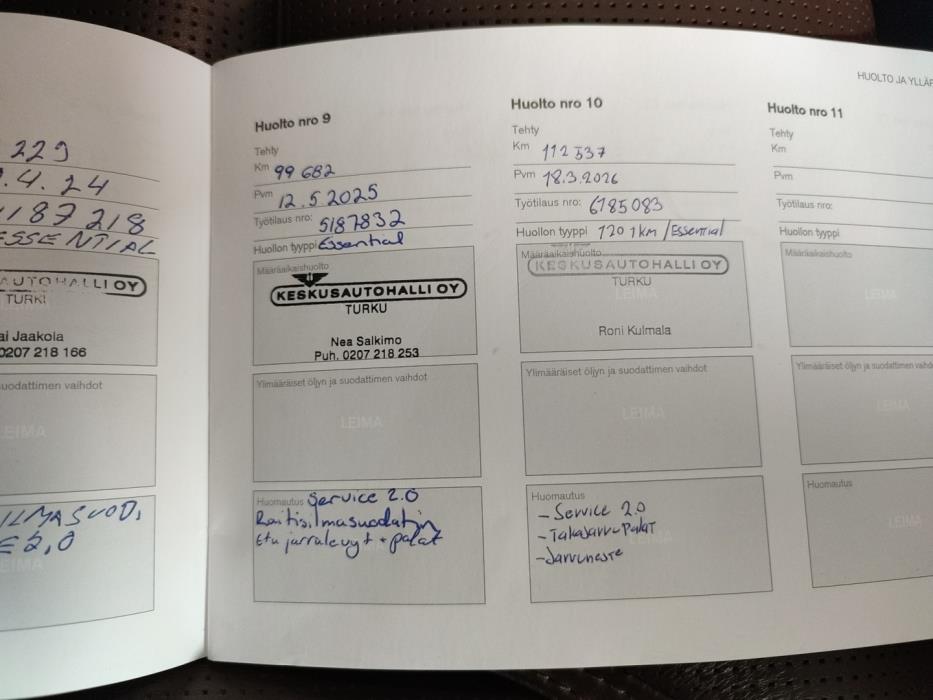 HUOLTO JA YLLÄP
229
.4.24
187218
ESSENTIAL
AUTOHALLI OY
TURKU
ai Jaakola
0207 218 166
uodattimen vaihdot
LEIMA
ILMASUOD.
2,0
LEIMA
Huolto nro 9
Tehty
Km 99 682
Pvm 12.5.2025
Työtilaus nro: 5187832
Huollon tyyppi Essential
Määräaikaishuolto
KESKUSAUTOHALLI OY
TURKU
Nea Salkimo
Puh. 0207 218 253
Ylimääräiset öljyn ja suodattimen vaihdot
LEIMA
Huomautus Service 2.0
Raitisilmasuodatin
Etu jarrulevyt + palat
Huolto nro 10
Tehty
Km 112 537
Pvm 18.3.2026
Työtilaus nro: 6185083
Huollon tyyppi 1201km/Essential
Määräaikaishuolto
KESKUSAUTOHALLI OY
TURKU
LEIMA
Roni Kulmala
Ylimääräiset öljyn ja suodattimen vaihdot
LEIMA
Huomautus
- Service 2.0
- Takajarru-Palat
- Jarruneste
LEIMA
Huolto nro 11
Tehty
Km
Pvm
Työtilaus nro:
Huollon tyyppi
Määräaikaishuolto
LEIMA
Ylimääräiset öljyn ja suodattimen vaihd
LEIMA
Huomautus
LEIMA